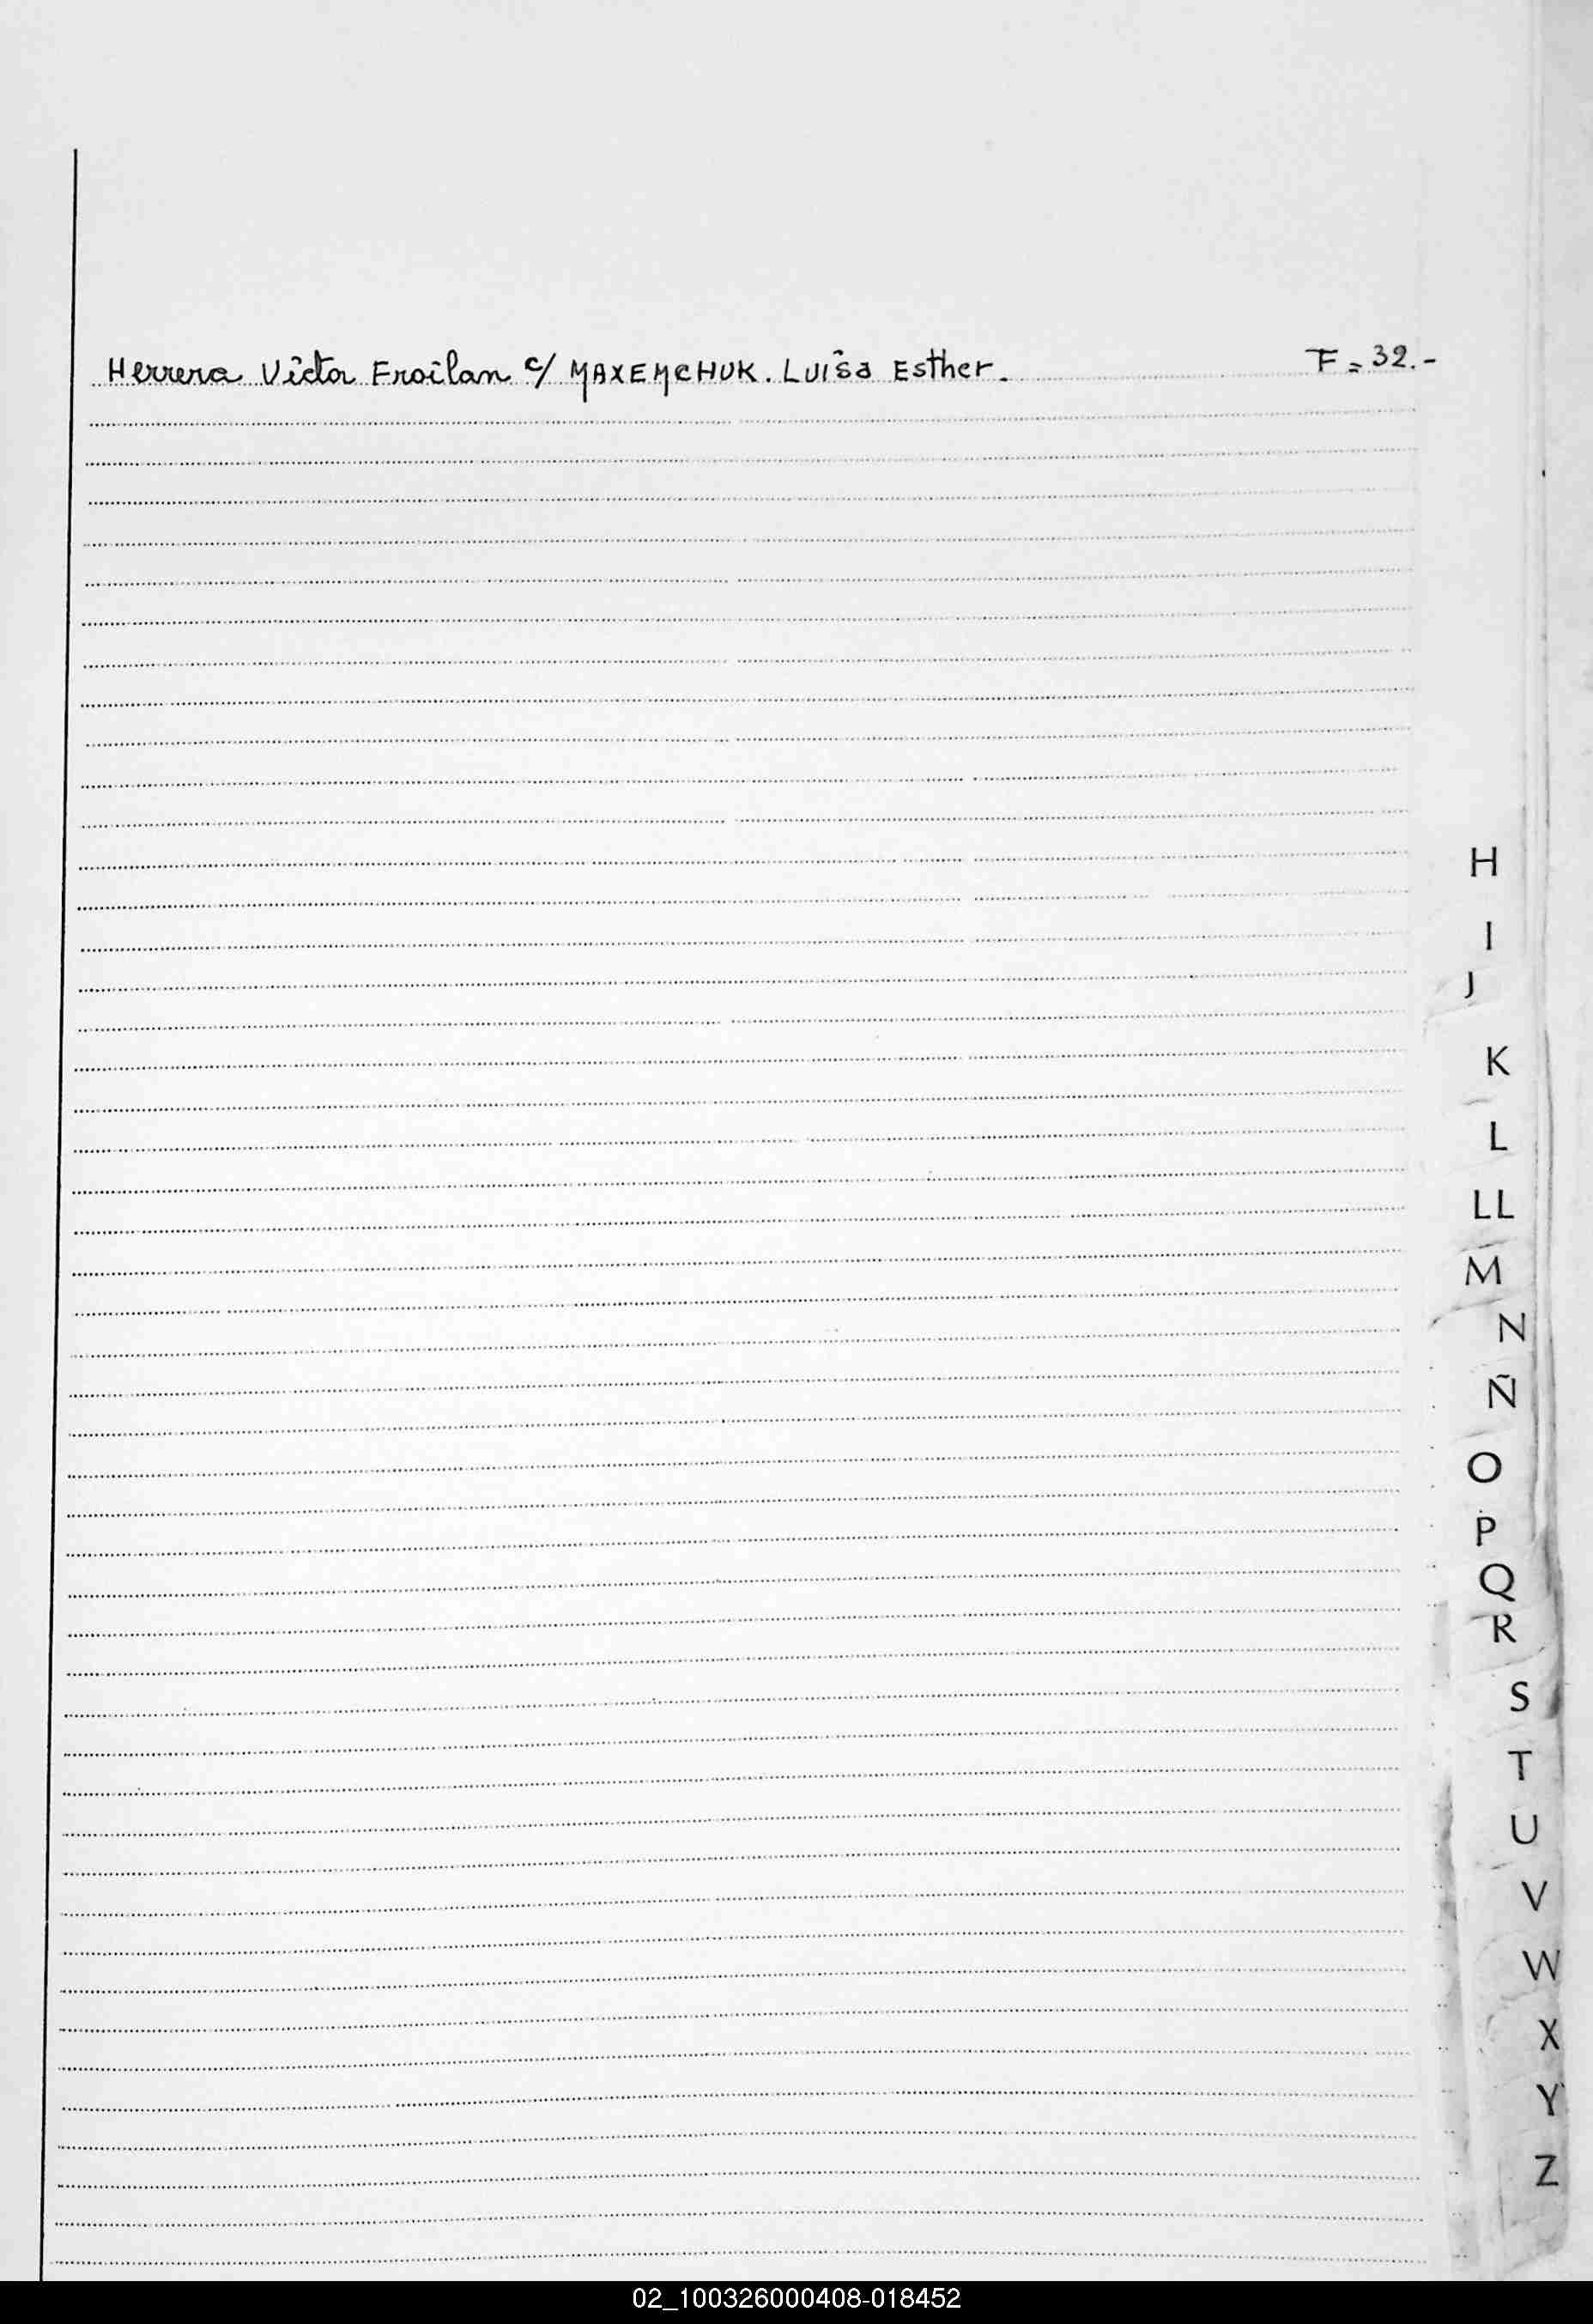 Herrera Victor Froilan c/ MAXEMCHUK. Luisa Esther. F = 32.-
H
I
J
K
L
LL
M
N
Ñ
O
P
Q
R
S
T
U
V
W
X
Y
Z
02_100326000408-018452